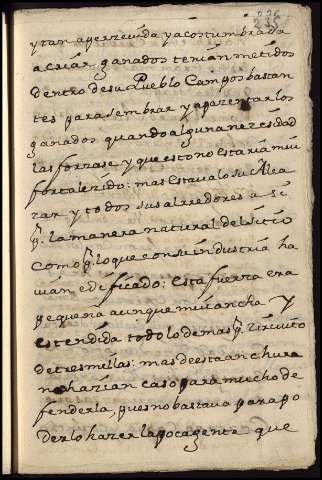 235
y tan apercevida y acostumbrada
a criar ganados tenian metidos
dentro de su Pueblo Campos bastan
tes para sembrar y apazentar los
ganados quando alguna necesidad
las forzase y que esto no estaria mui
fortalezido: mas estavalo su Alca
zar y todos sus alrredores asi
p. la manera natural del sitio
como p. lo que con su industria ha
vian edificado: esta fuerza era
pequeña aunque mui ancha y
estendida todo lo demas p. zircuito
de tres millas: mas de esta anchura
no harian caso para mucho de
fenderla, pues no bastava para po
derlo hazer la poca gente que